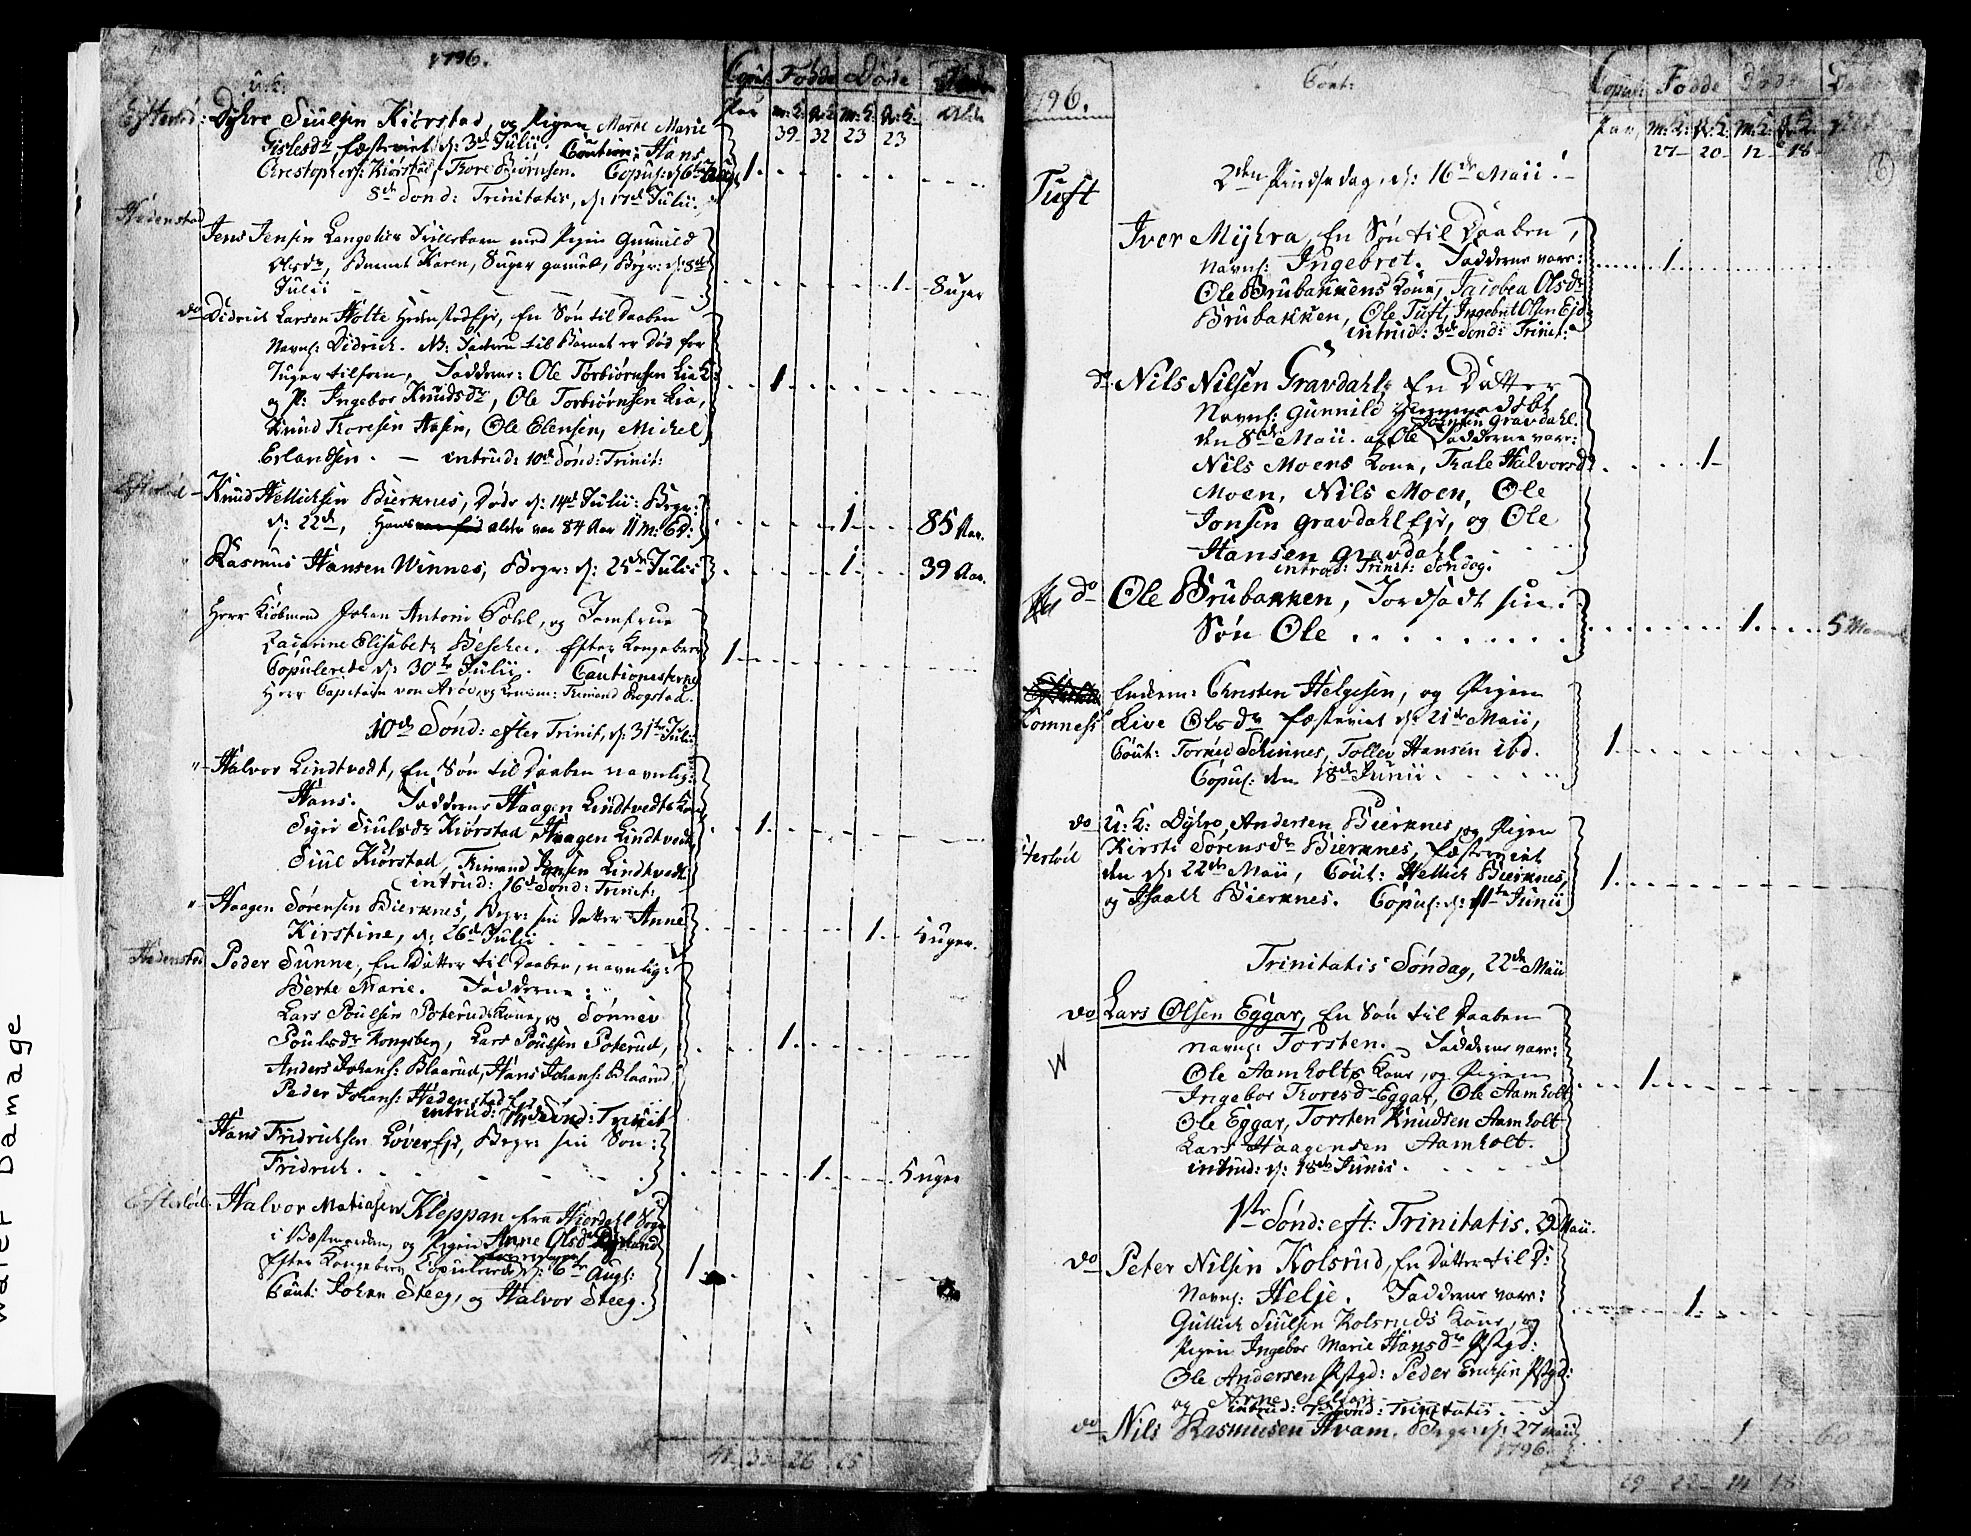 1796.
Copul: Födde Döde
Par m:k: q:k: m:k: q:k: Alder
39 32 23 23
u.k.
Efterlöd: Dyhre Siulsen Kiörstad, og Pigen Marte Marie
Gislesdr fæstemet d: 3de Julii. Caution: Hans
Christophers: Kiörstad, Tore Biörnsen. Copul: d: 6te Aug. 1
8de Sönd: Trinitatis, d: 17de Julii.
Hedenstad Jens Jensen Langelies Frillebarn med Pigen Gunnild
Olsdr, Barnet Karen, 8 uger gamel, Begr: d: 8de
Julii 1 8 uger
do Didrich Larsen Holte Hedenstad Ejr, En Sön til Daaben
Navnl: Didrich. NB: Faderen til Barnet er Död for
uger tilforn, Fadderne: Ole Torbiörnsen Lia K: 1
og P: Ingebor Knudsdr, Ole Torbiörnsen Lia,
Knud Toresen Aasen, Ole Elensen, Michel
Erlandsen. — intrud: 10de Sönd: Trinit:
Efterlöd — Knud Hellichsen Bierknes, Döde d: 14de Julii: Begr:
d: 22de, Hans alder var 84 Aar 11 m: 6 d: 1 85 Aar.
" Rasmus Hansen Winnes, Begr: d: 25de Julii 1 39 Aar.
" Herr Kiöbmand Johan Antoni Pohl, og Jomfrue
Catarine Elisabeth Bescher. Efter Kongebrev 1
Copulerede d: 30te Julii. Cautionisterne
Herr Capitain von Aröe, og Trimand Rogstad.
10de Sönd: efter Trinit, d: 31te Julii
" Halvor Lindtvedt, En Sön til Daaben navnlig:
Hans. Fadderne Haagen Lindtvedts Kone
Sigri Siulsdr Kiörstad Haagen Lindtvedt 1
Siul Kiörstad, Trimand Jensen Lindtvedt:
intrud: 16de Sönd: Trinit:
" Haagen Sörensen Bierknes, Begr: sin Datter Anne
Kirstine, d: 26de Julii 1 5 uger.
Hedenstad Peder Sunne, En Datter til Daaben, navnlig:
Berte Marie. Fadderne:
Lars Poulsen Poteruds Kone, og Sönnev
Poulsdr Kongsberg, Lars Poulsen Poterud, 1
Anders Johans: Blaarud, Hans Johans: Blaarud
Peder Johans: Hedenstad Ejr
intrud: Sönd: Trinit
Hans Fridrichsen Löver Ejr, Begr: sin Sön:
Fridrich. 1 5 uger
Efterlöd. Halvor Matiasen Kleppan fra Hjordahl
og Pigen Anne Olsdr
Efter Kongebrev Copulerede d: 6te Aug: 1
Caut: Johan Steeg, og Halvor Steeg.
26 25
1796. Cont:
Copul: Födde Döde
Par, m:k: q:k: m:k: q:k:
27 20 12 18
6
Tuft
2den Pindsedag, d: 16de Maii.
Iver Myhra, En Sön til Daaben,
Navnl: Ingebret. Fadderne vare: 1
Ole Brubakkens Kone, Jacobea Olsdr
Brubakken, Ole Tuft, Ingebret Olsen Ejd:
intrud: 3de Sönd: Trinit.
do Nils Nilsen Gravdahl, En Datter
Navnl: Gunnild hjemmedöbt
den 8de Maii. af Ole Jonsen Gravdahl. Fadderne vare:
Nils Moens Kone, Trale Halvorsdr 1
Moen, Nils Moen, Ole
Jonsen Gravdahl Ejr, og Ole
Hansen Gravdahl
intrud: Trinit: Söndag.
do Ole Brubakken, Jordsadt sin
Sön Ole 1 5 Maaneder
Komnes Enkem: Christen Helgesen, og Pigen
Live Olsdr fæstemet d: 21de Maii,
Caut: Tornes Schinnes, Tollev Hansen ibd. 1
Copul: den 18de Junii.
do U: K: Dyhre Andersen Bierknes, og Pigen
Efterlöd Kirsti Sörensdr Bierknes, fæstemet
den d: 22de Maii, Caut: Hellich Bierknes, 1
og Isaach Bierknes. Copul: d: Junii
Trinitatis Söndag, 22de Maii
do Lars Olsen Eggar, En Sön til Daaben
Navnl: Torsten. — Fadderne vare:
Ole Aamholts Kone, og Pigen 1
Ingebor Toresdr Eggar, Ole Aamholt
Ole Eggar, Torsten Knudsen Aamholt
Lars Haagensen Aamholt.
intrud: d: 18de Junii
1ste Sönd: eft: Trinitatis. 29 Maii.
do Peter Nilsen Kolsrud, En Datter til D:
Navnl: Helje. Fadderne vare: 1
Gullich Siulsen Kolsruds Kone, og
Pigen Ingebor Marie Hansdr Pstgd:
Ole Andersen Pstgd: Peder Erichsen Pstgd:
og Arne
intrud: 7de Sönd: Trinitatis
do Nils Rasmusen Hvam. Begr: d: 27 Maii 1 60
1796.
29 22 14 18
Water Damage